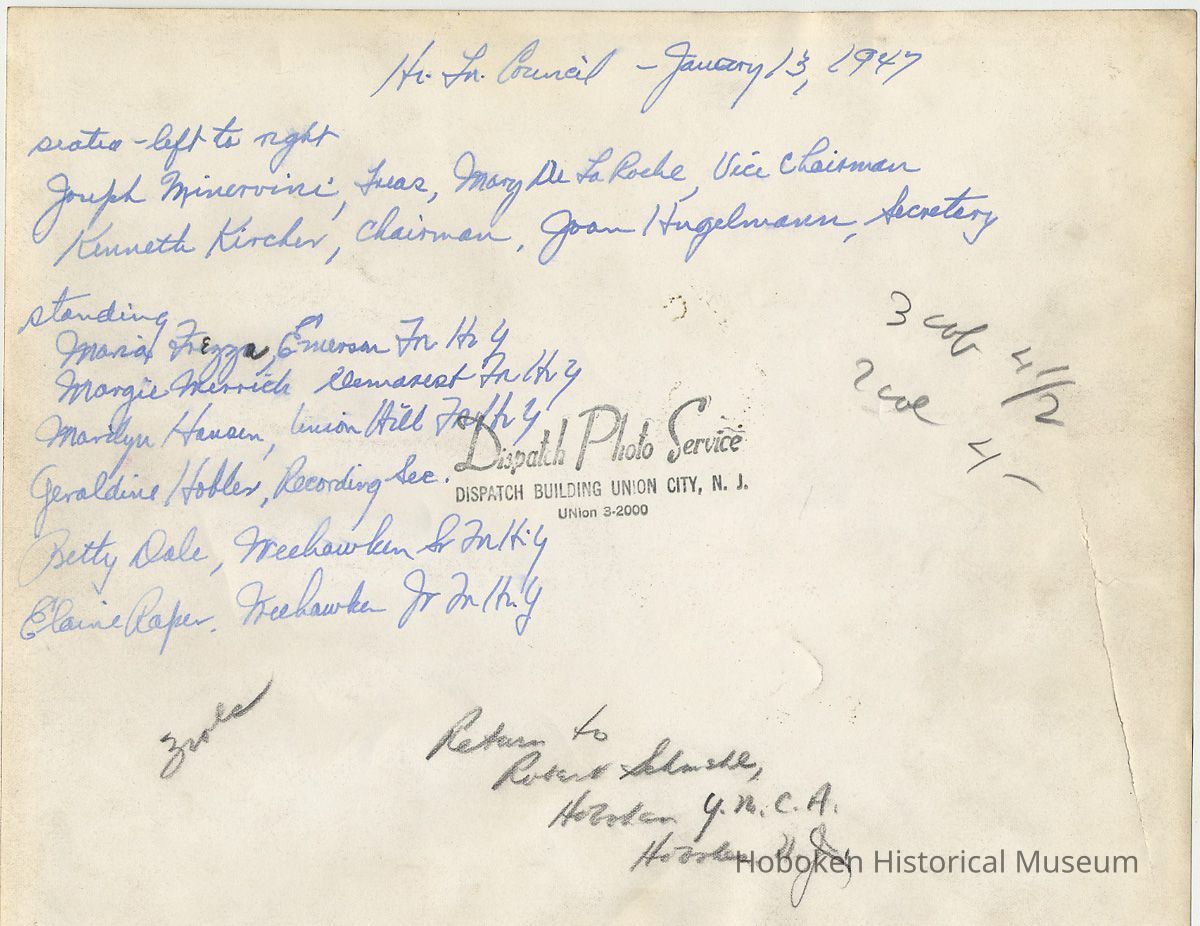 Hi. Tri. Council - January 13, 1947
seated - left to right
Joseph Minervini, Treas, Mary De La Roche, Vice Chairman
Kenneth Kircher, Chairman, Joan Hugelmann, Secretary
standing
Maria Frezza, Emerson Tri Hi Y
Margie Merrick Demarest Tri Hi Y
Marilyn Hansen, Union Hill Tri Hi Y
Geraldine Hobler, Recording Sec.
Dispatch Photo Service
DISPATCH BUILDING UNION CITY, N. J.
UNion 3-2000
Betty Dale, Weehawken Sr Tri Hi-Y
Elaine Raper. Weehawken Jr Tri Hi-Y
3 col 4 1/2
2 col 4
Return to
Robert
Hoboken Y.M.C.A.
Hoboken N.J.
Hoboken Historical Museum